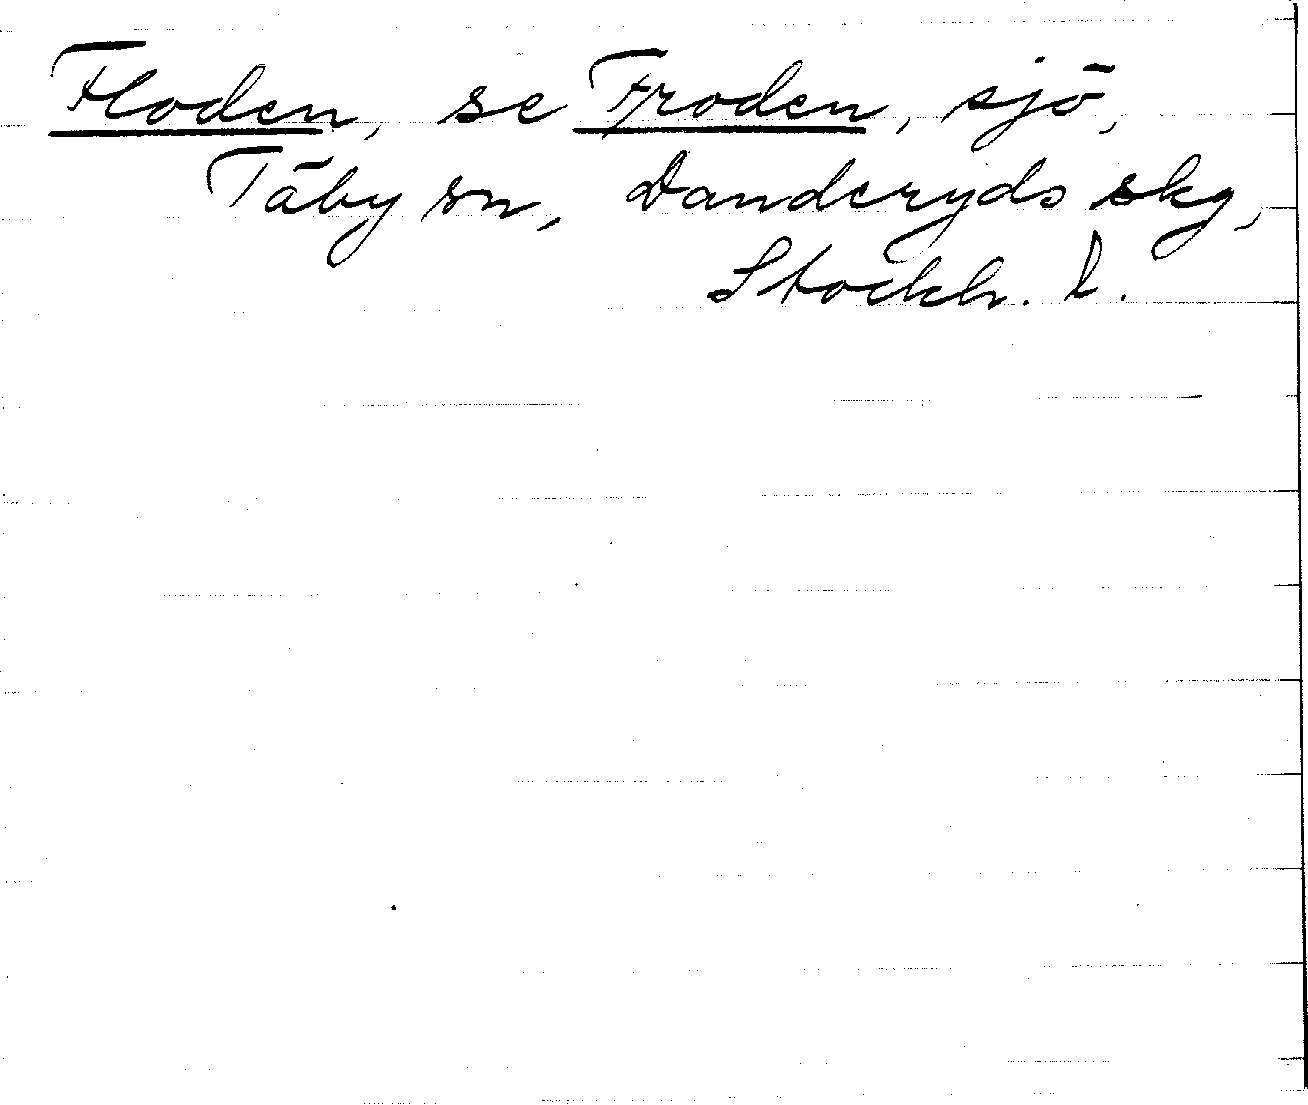 Floden, se Fjroden, sjö,
Täby sn, Danderyds skg,
Stockh. l.